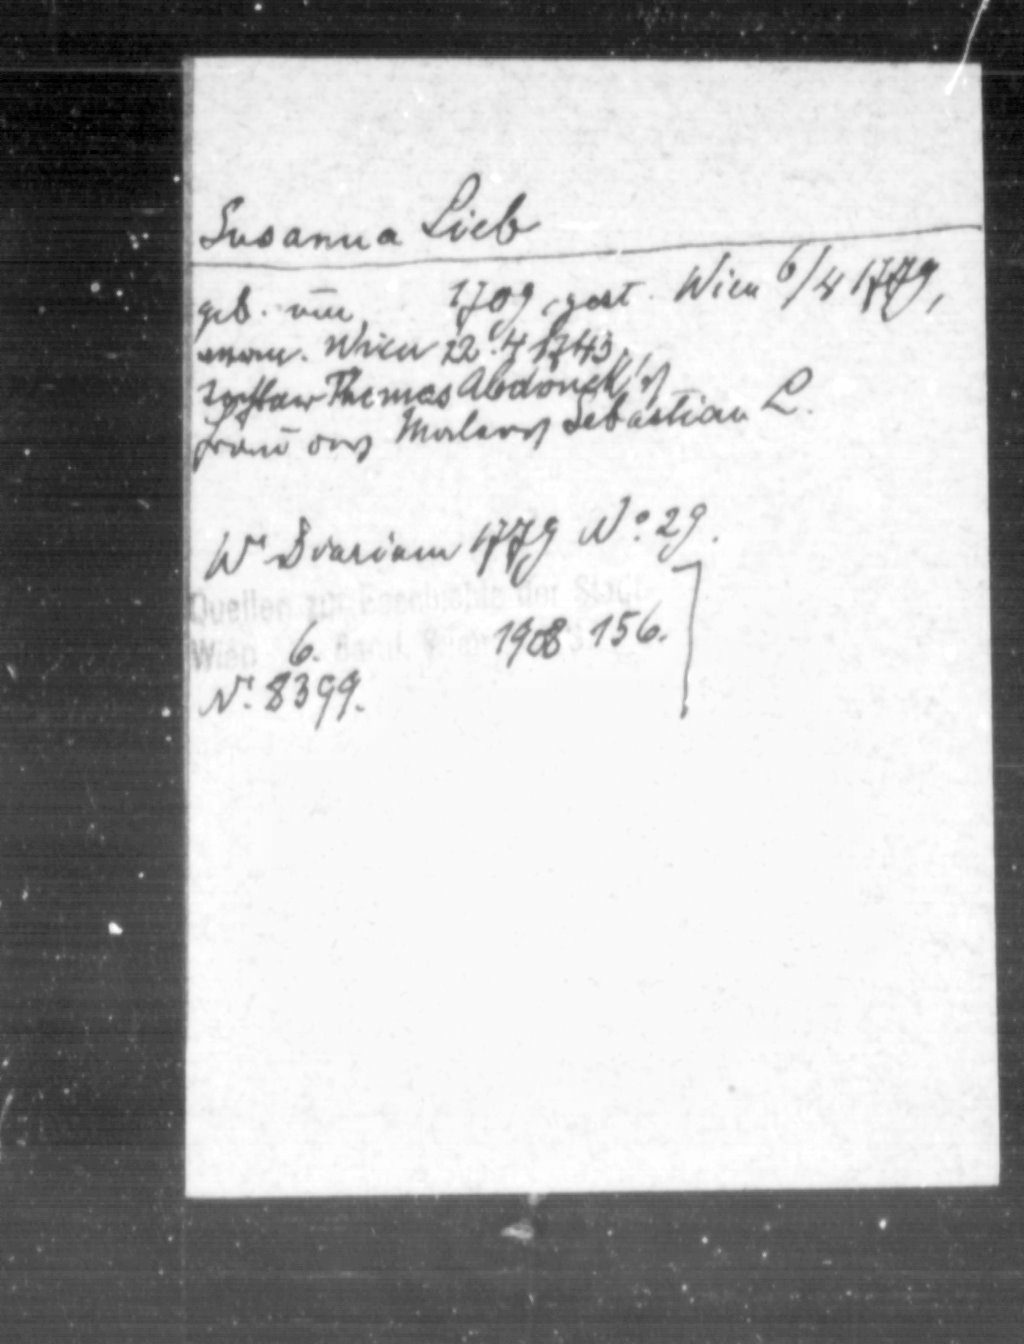 Susanna Lieb
geb. um 1709, gest. Wien 6/4 1779,
Wien 22. 4 1743,
Tochter Thomas Abdonek's
Frau des Malers Sebastian L.
Wr Diarium 1779 No. 29.
Quellen zur Geschichte der Stadt
Wien 6. Band, 1908 156.
Nr. 8399.